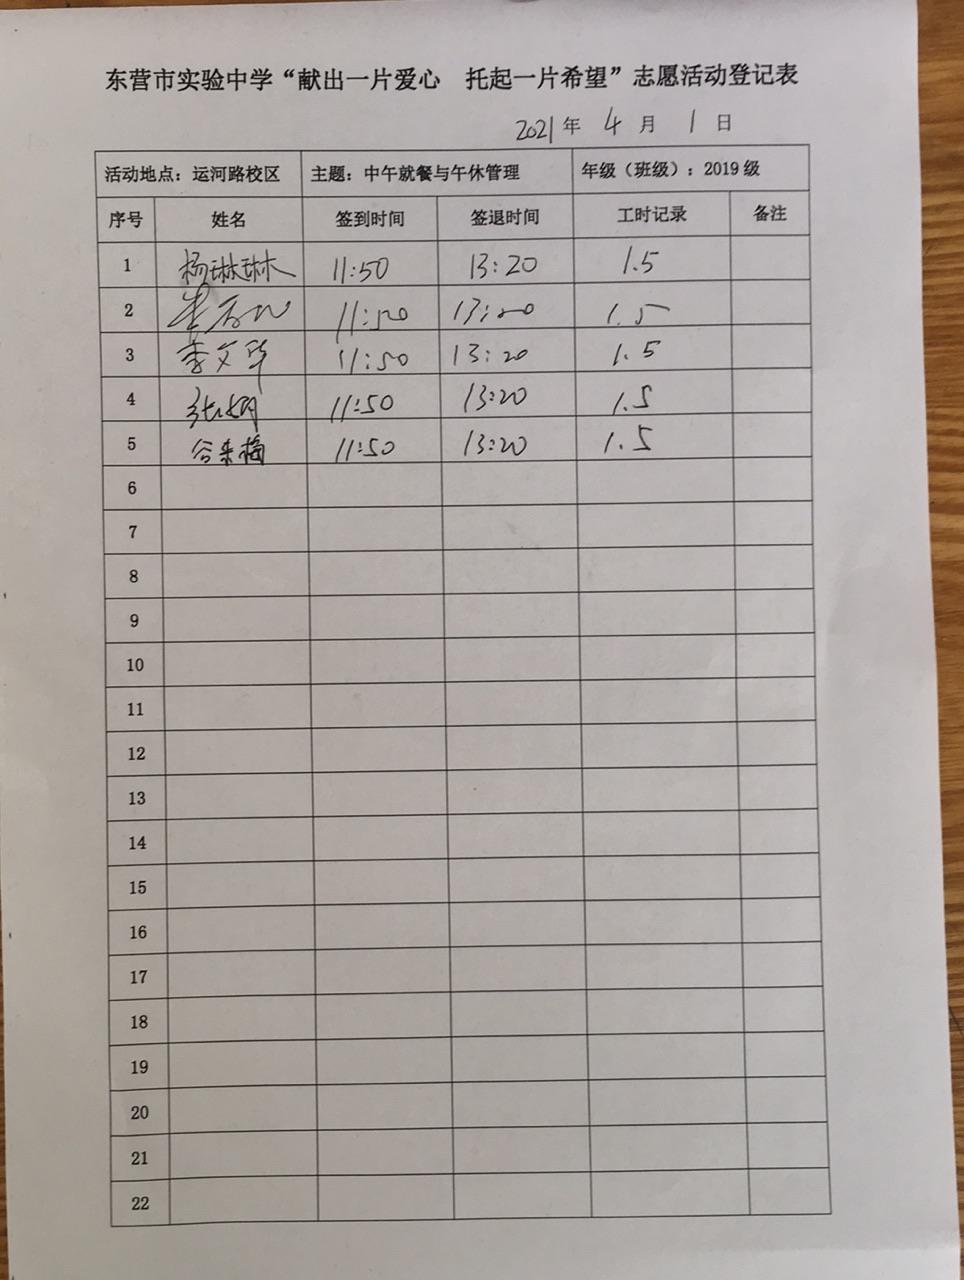 东营市实验中学“献出一片爱心 托起一片希望”志愿活动登记表
2021年 4月 1日
活动地点：运河路校区 主题：中午就餐与午休管理 年级（班级）：2019级
序号 姓名 签到时间 签退时间 工时记录 备注
1 杨琳琳 11:50 13:20 1.5
2 11:50 13:20 1.5
3 李文华 11:50 13:20 1.5
4 张娟 11:50 13:20 1.5
5 谷来梅 11:50 13:20 1.5
6
7
8
9
10
11
12
13
14
15
16
17
18
19
20
21
22